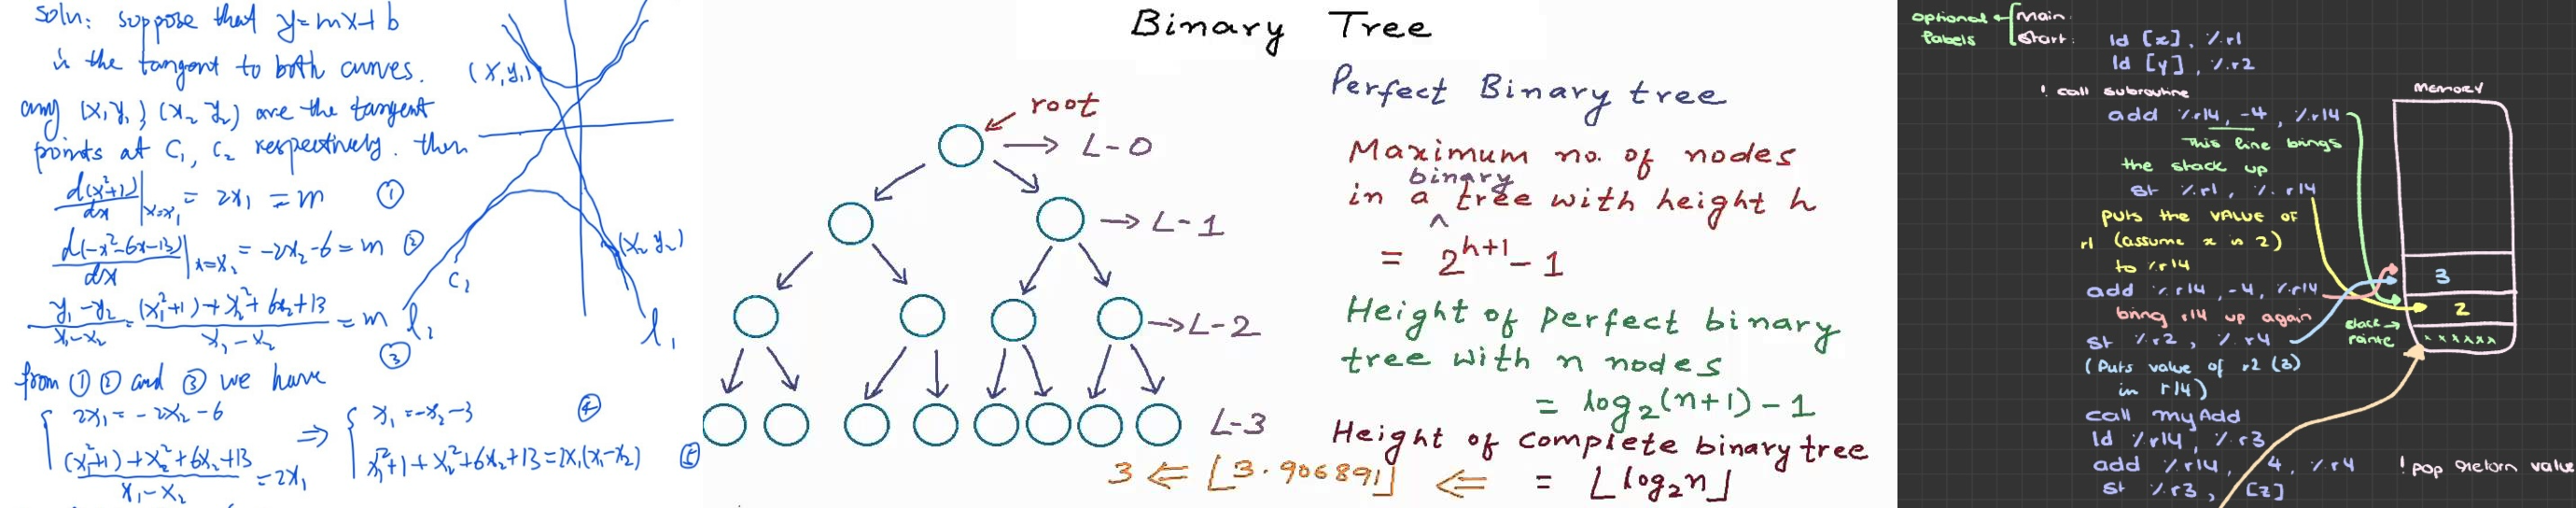 soln: suppose that y=mx+b
is the tangent to both curves.
any (x₁ y₁) (x₂ y₂) are the tangent
points at C₁, C₂ respectively. then
d(x²+1)/dx |x=x₁ = 2x₁ = m ①
d(-x²-6x-13)/dx |x=x₂ = -2x₂-6 = m ②
(y₁-y₂)/(x₁-x₂) = ((x₁²+1)+x₂²+6x₂+13)/(x₁-x₂) = m
③
from ① ② and ③ we have
2x₁ = -2x₂-6
((x₁²+1)+x₂²+6x₂+13)/(x₁-x₂) = 2x₁
⇒
x₁ = -x₂-3 ④
x₁²+1+x₂²+6x₂+13=2x₁(x₁-x₂) ⑤
(x, y₁)
(x₂ y₂)
l₂
l₁
Binary Tree
root
L-0
L-1
L-2
L-3
Perfect Binary tree
Maximum no. of nodes
in a binary tree with height h
= 2^(h+1) - 1
Height of perfect binary
tree with n nodes
= log₂(n+1) - 1
Height of complete binary tree
3 ⇐ ⌊3.906891⌋ ⇐ = ⌊log₂n⌋
optional
labels
main:
start:
ld [x], %r1
ld [y], %r2
! call subroutine
add %r14, -4, %r14
This line brings
the stack up
st %r1, %r14
puts the VALUE OF
r1 (assume x is 2)
to %r14
add %r14, -4, %r14
bring r14 up again
st %r2, %r4
(Puts value of r2 (3)
in r14)
call myAdd
ld %r14, %r3
add %r14, 4, %r4 ! pop return value
st %r3, [z]
MEMORY
3
2
stack
xxxxxx